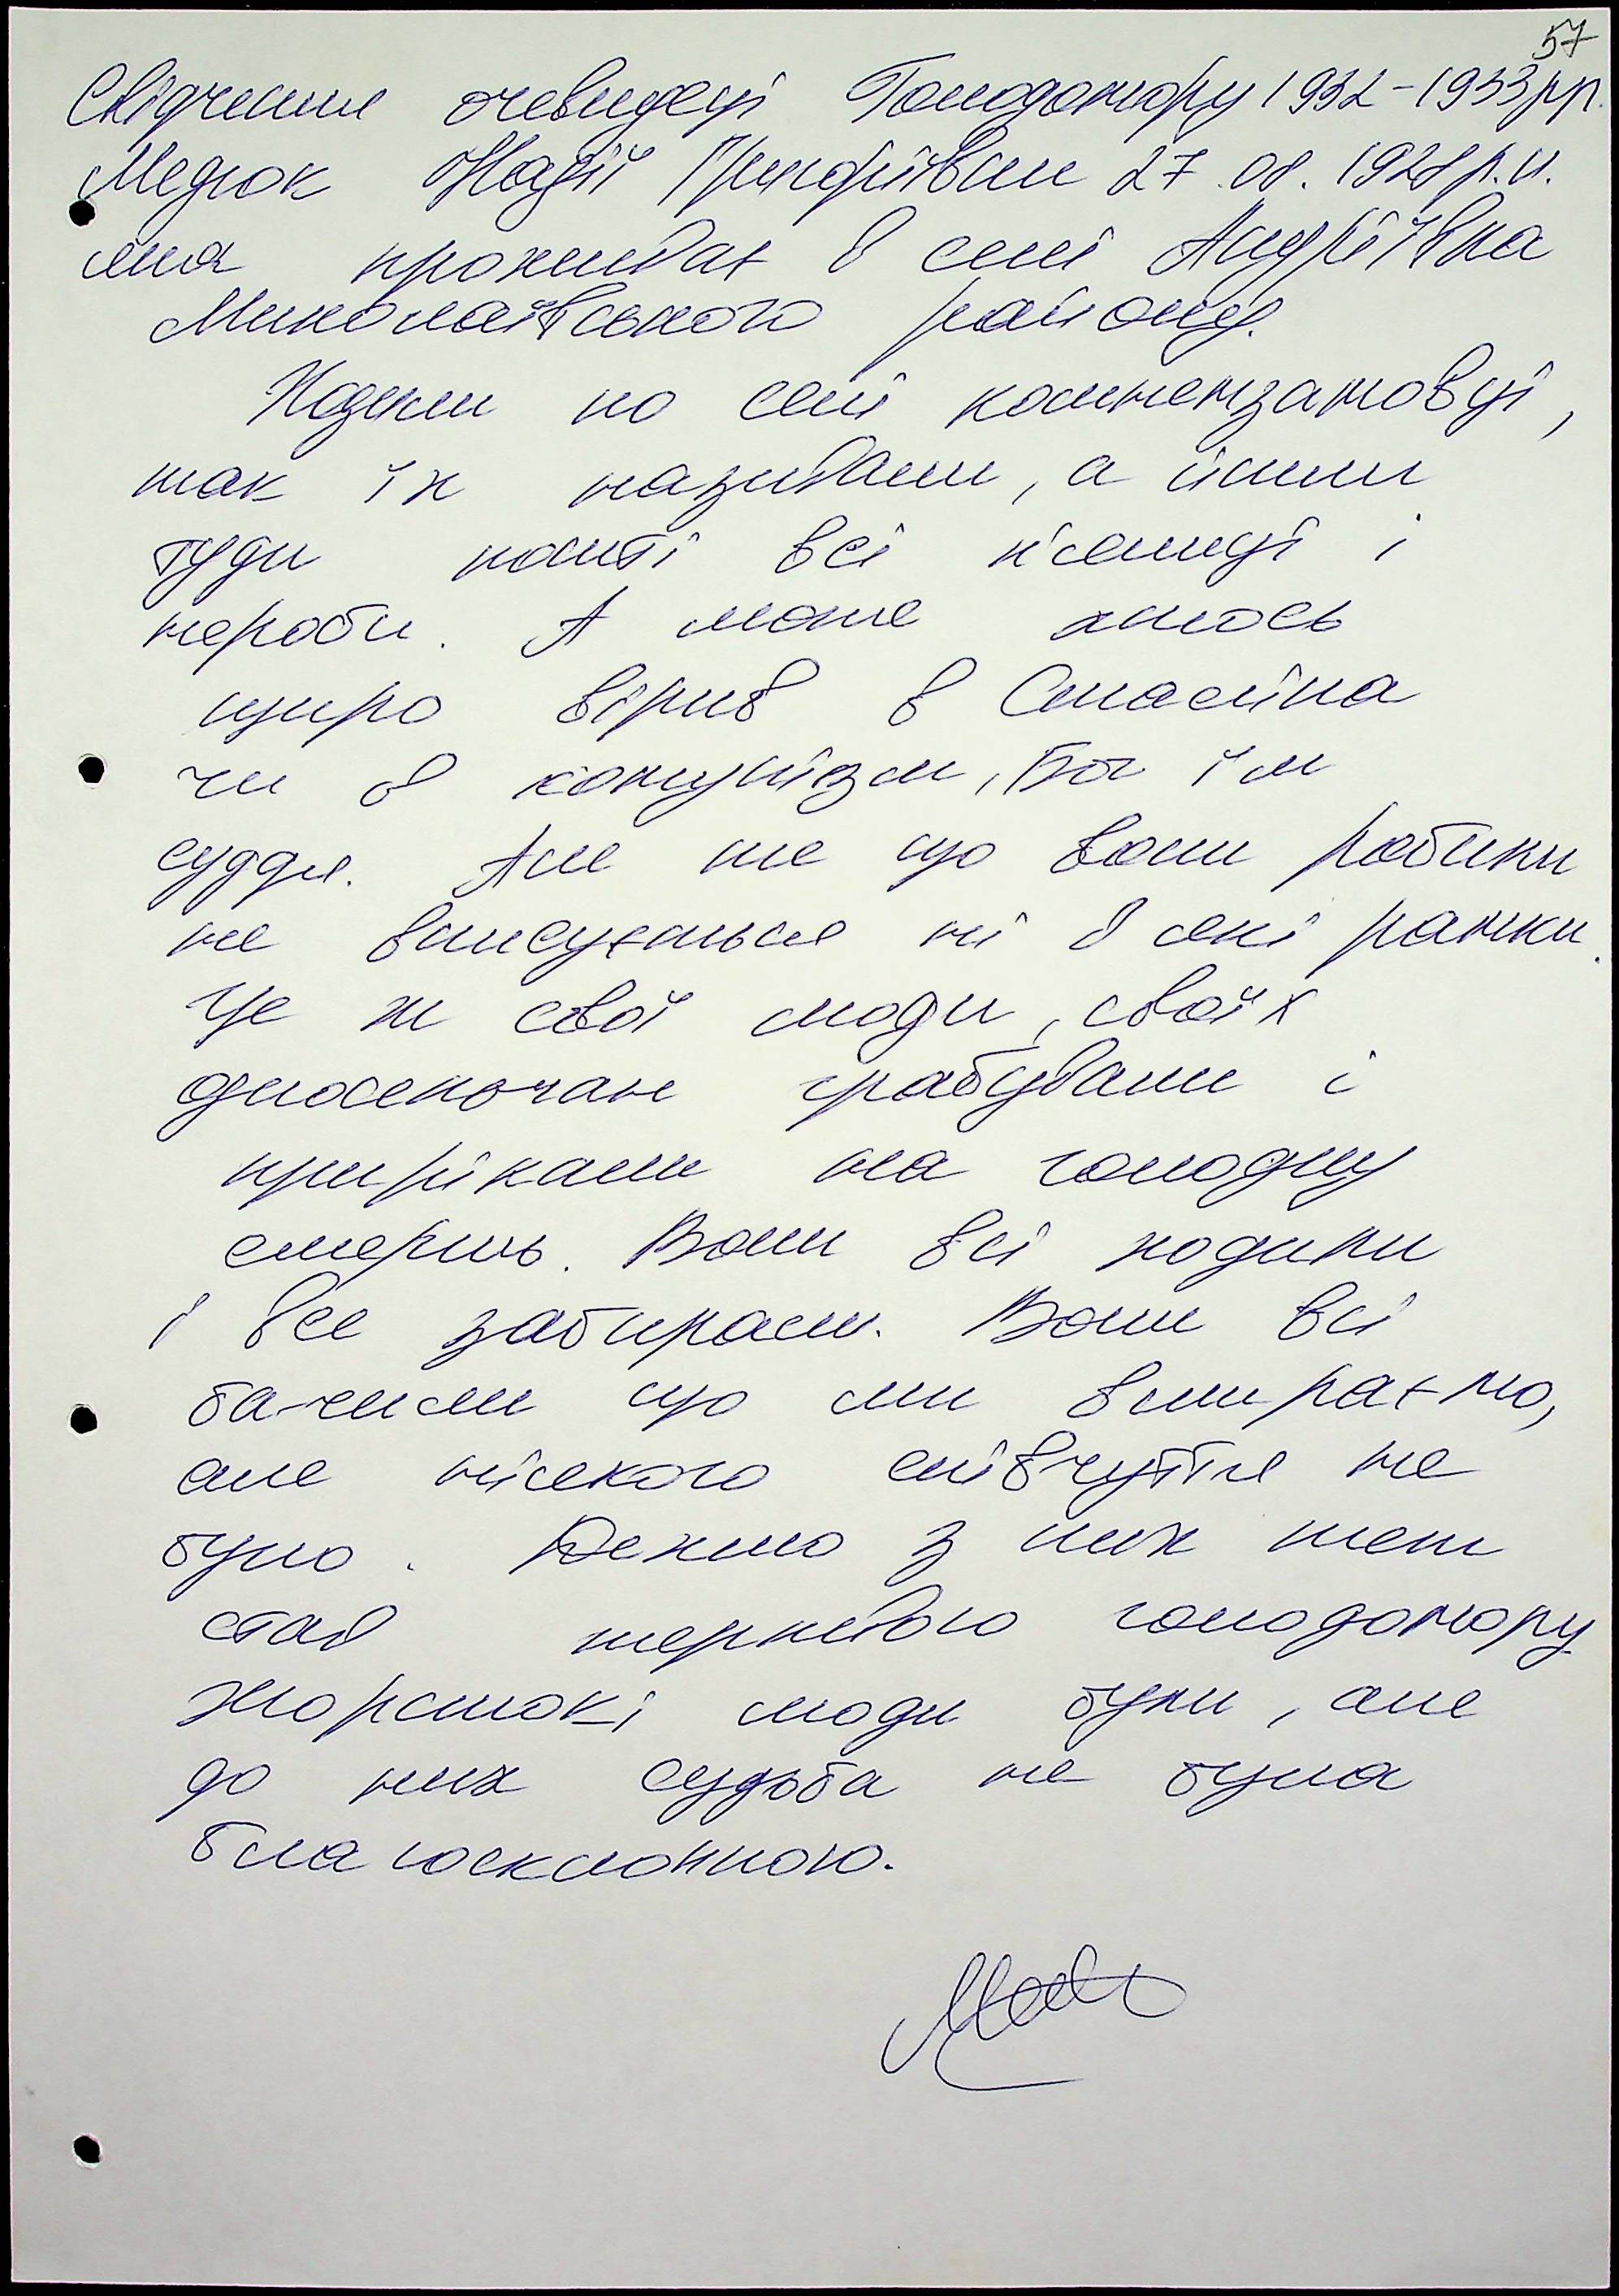 57
Свідчення очевидеці Голодомору 1932-1933 рр.
Медюк Надії 27.08.1928 р.н.
яка проживає в селі Андріївка
Миколаївського району.
Ходили по селі комнемзамовці,
так їх називали, а йшли
туди пошті всі п'яниці і
нероби. А може хтось
щиро вірив в Сталіна
чи в комунізм, Бог їм
суддя. Але те що вони робили
не вписується ні в які рамки.
Це ж свої люди, своїх
односельчан грабували і
прирікали на голодну
смерть. Вони всі ходили
і все забирали. Вони всі
бачили що ми вмираємо,
але ніякого співчуття не
було. Дехто з них теж
став жертвою голодомору
Жорстокі люди були, але
до них судьба не була
благосклонною.